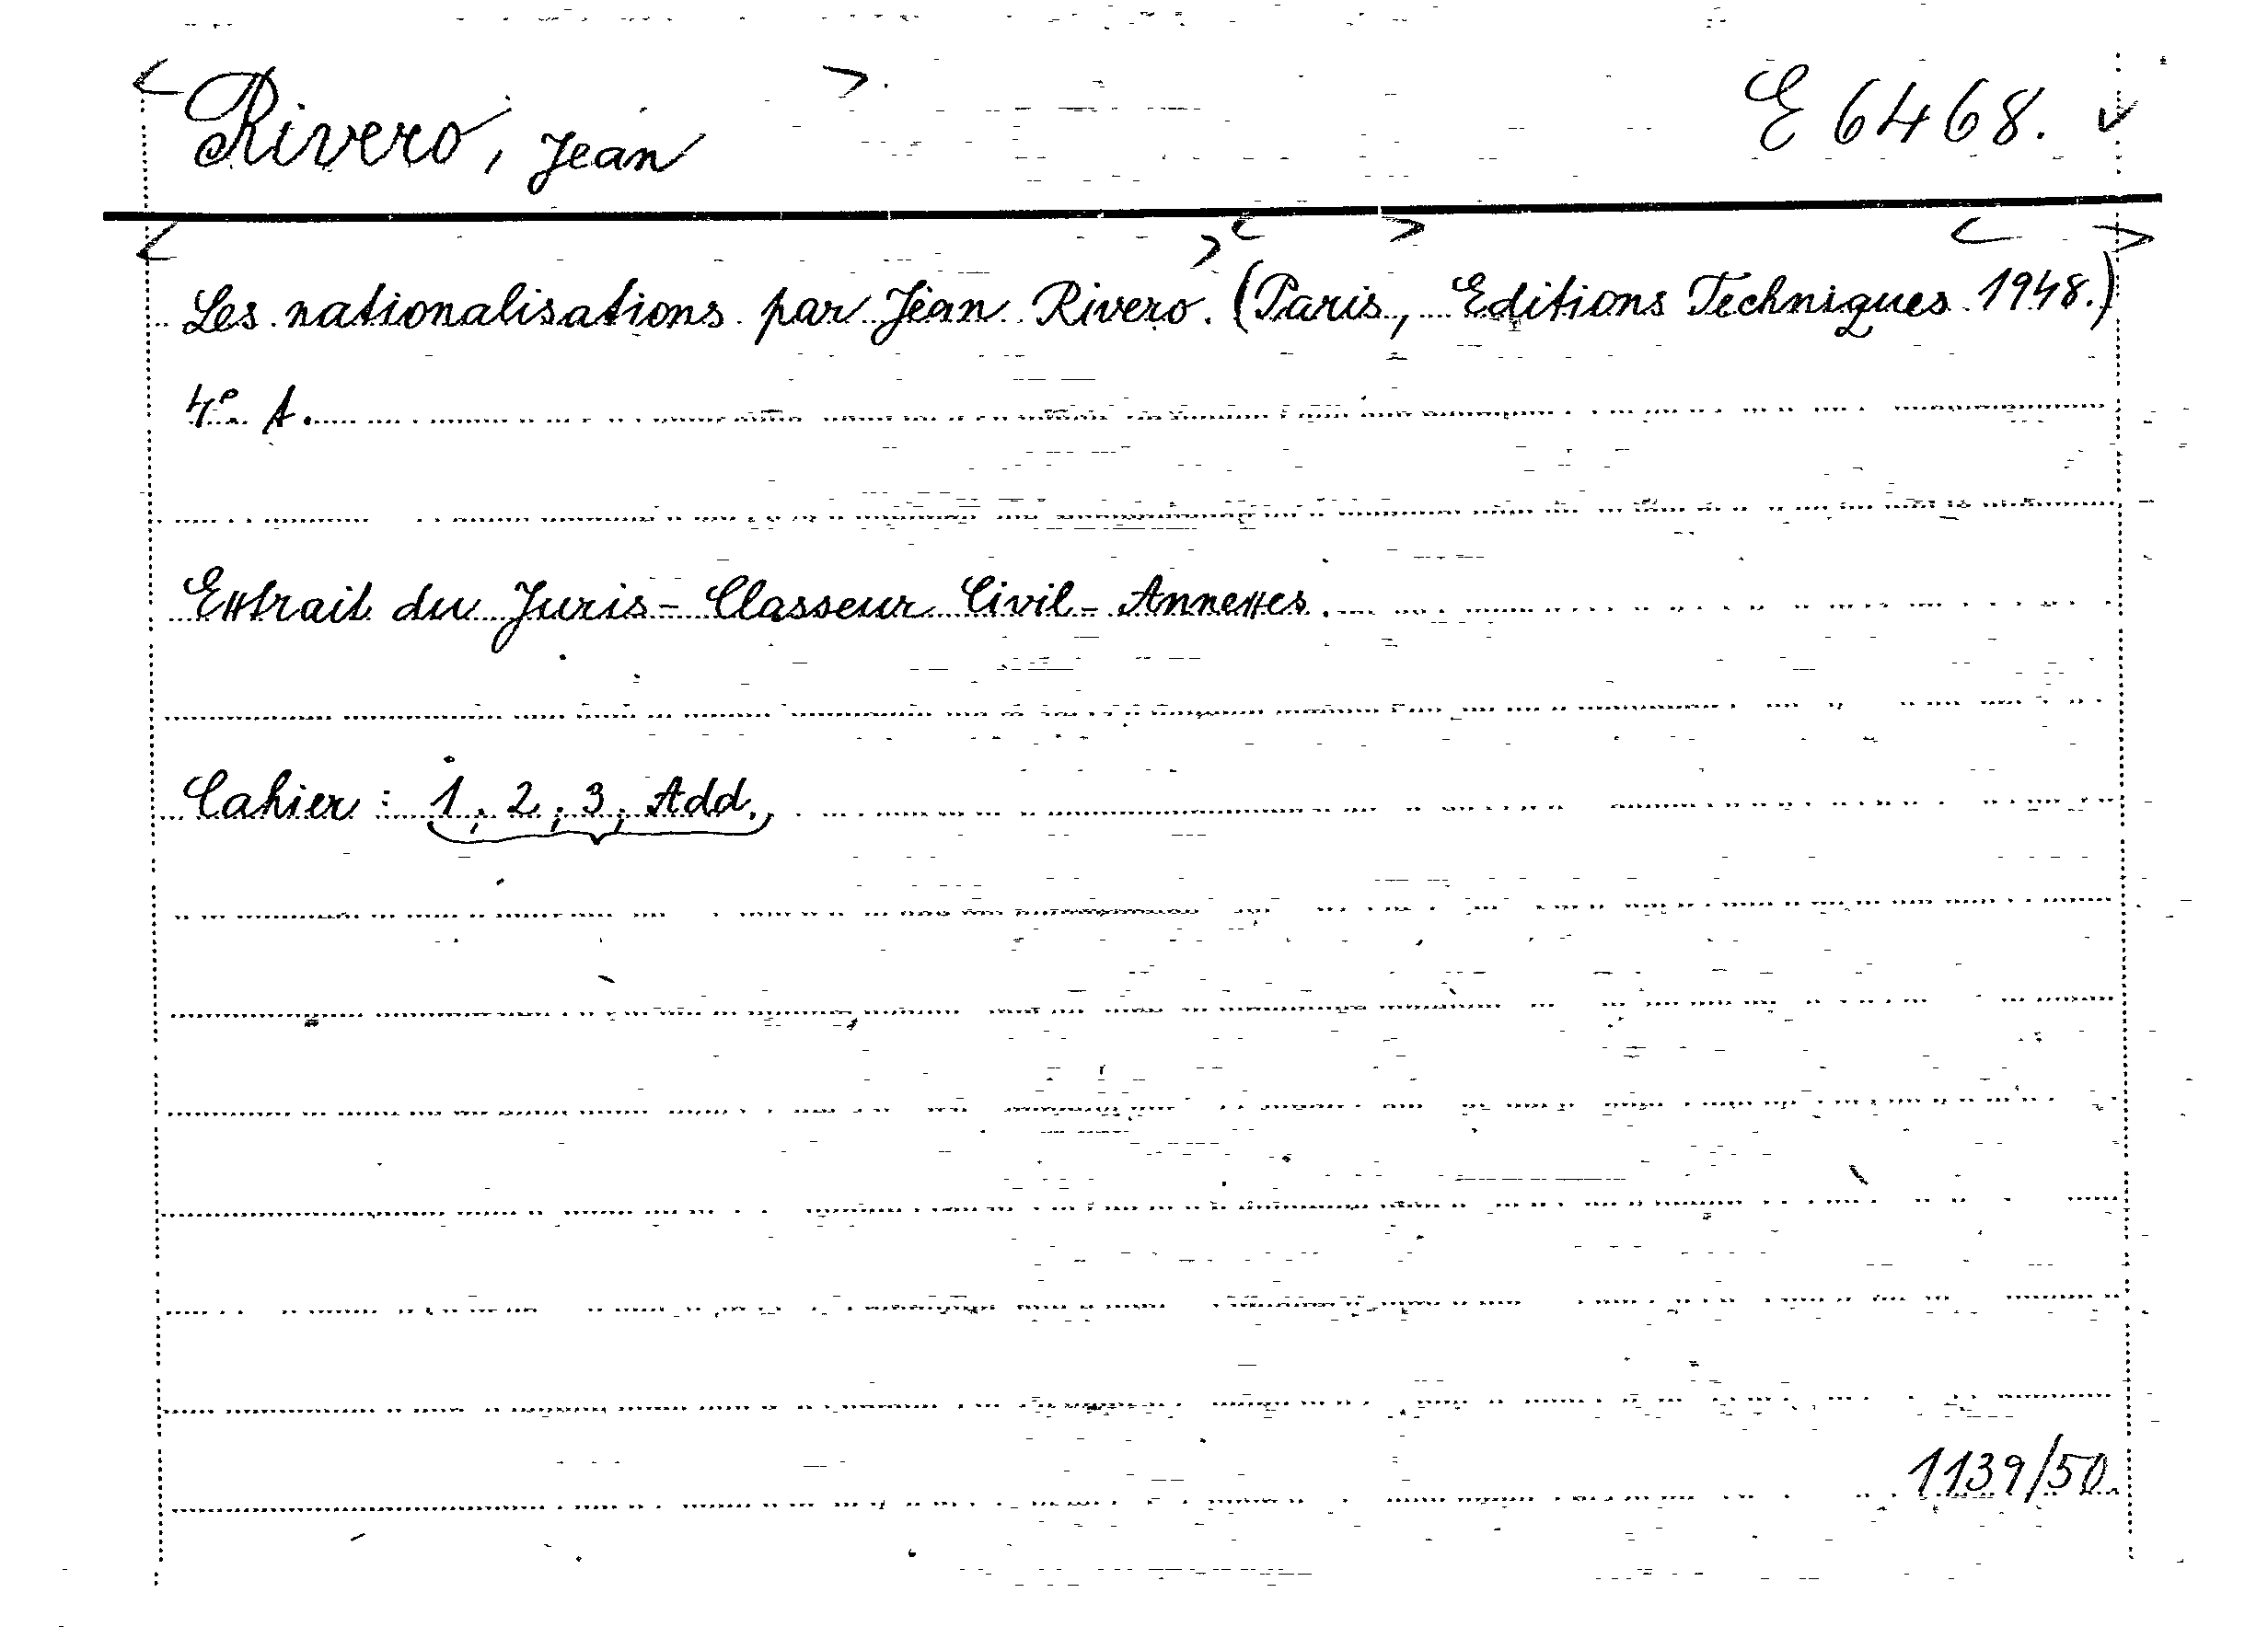 Rivero, Jean E 6468.
Les nationalisations par Jean Rivero. (Paris, Editions Techniques 1948.)
4° A.
Extrait du Juris-Classeur Civil-Annexes.
Cahier: 1, 2, 3, Add.,
1139/50